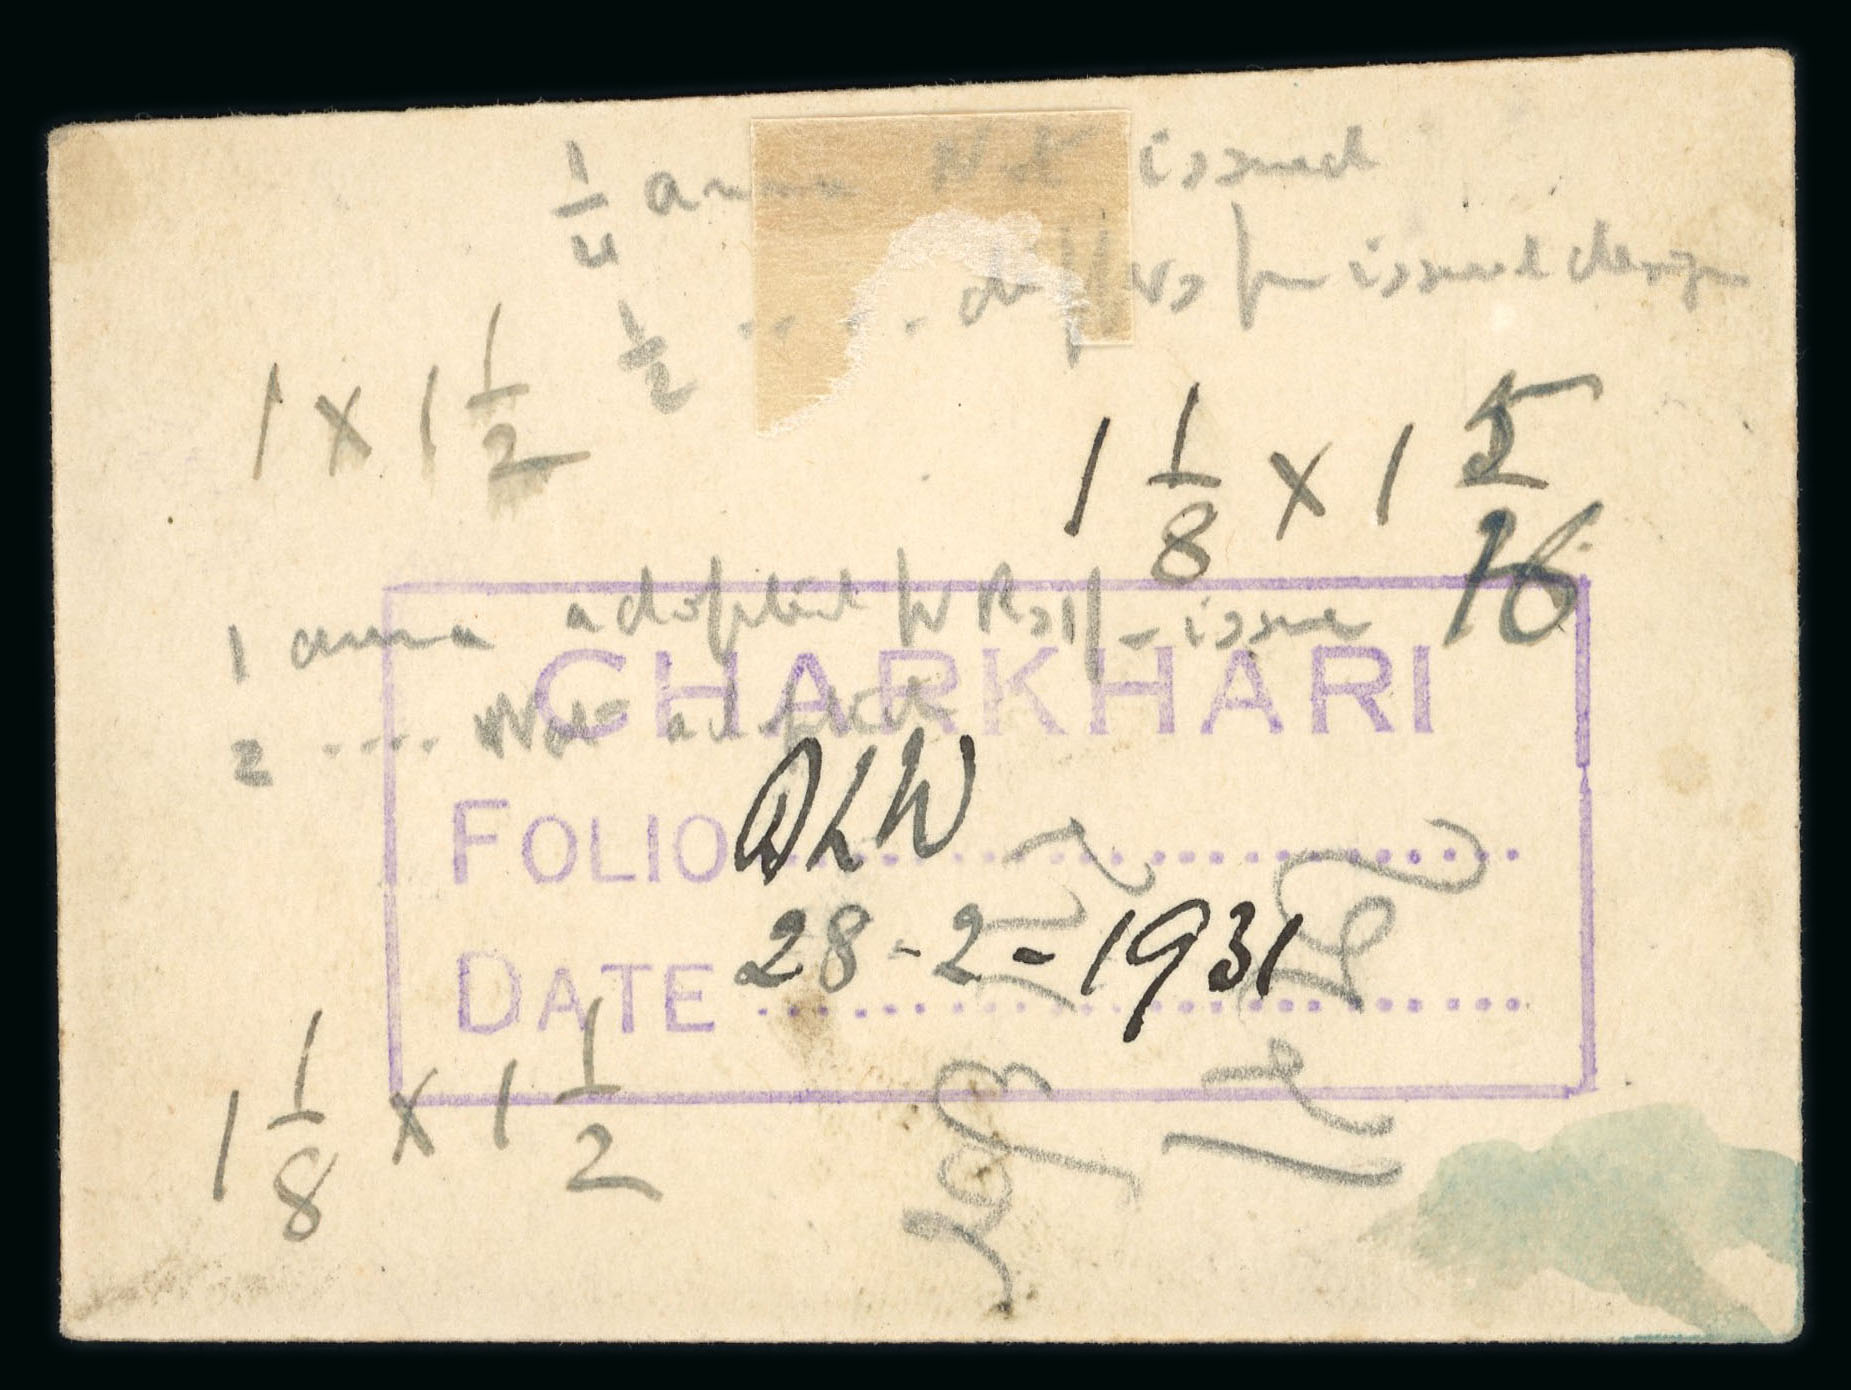 1/4 anna Not issued
1/2 .. .. differs for issued design
1 x 1 1/2
1 1/8 x 1 5/16
1 anna adopted for Rs 1/- issue
2 .... Not adopted
CHARKHARI
FOLIO DLW
DATE 28-2-1931
1 1/8 x 1 1/2